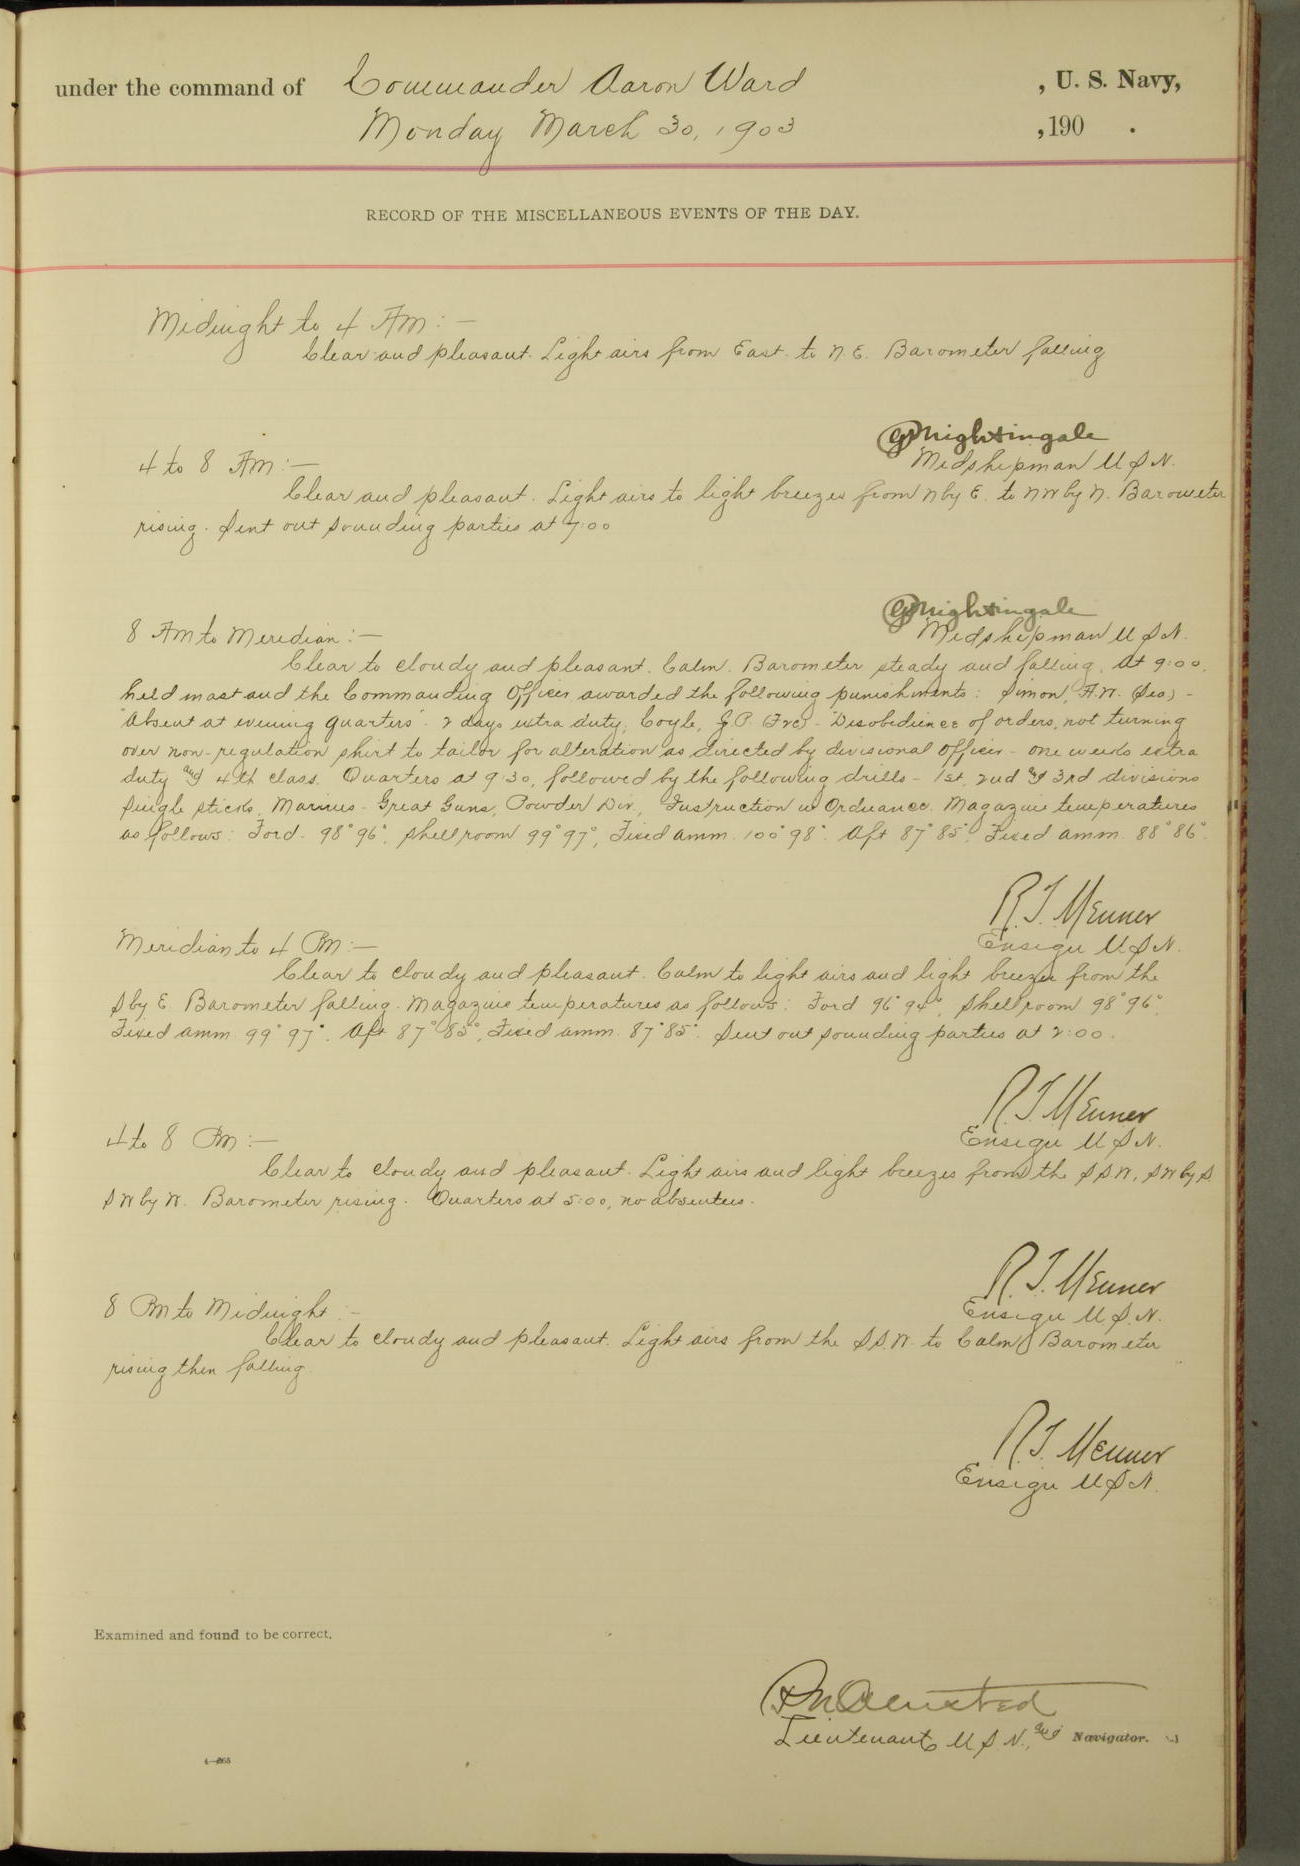 under the command of Commander Aaron Ward , U. S. Navy,
Monday March 30, 1903 , 190 .
RECORD OF THE MISCELLANEOUS EVENTS OF THE DAY.
Midnight to 4 AM:—
Clear and pleasant. Light airs from East to N.E. Barometer falling
Nightingale
Midshipman U S N.
4 to 8 AM:—
Clear and pleasant. Light airs to light breezes from N by E. to NW by N. Barometer
rising. Sent out sounding parties at 7:00
Nightingale
Midshipman U S N.
8 AM to Meridian:—
Clear to cloudy and pleasant. Calm. Barometer steady and falling. At 9:00
held mast and the Commanding Officer awarded the following punishments: Simon, A.N. (Sea) -
"Absent at evening quarters". 2 days extra duty; Coyle, J.P. - "Disobedience of orders, not turning
over non-regulation shirt to tailor for alteration as directed by divisional officer - one weeks extra
duty and 4th class. Quarters at 9:30, followed by the following drills - 1st, 2nd and 3rd divisions
Single sticks, Marines - Great Guns, Powder Div. Instruction in Ordnance. Magazine temperatures
as follows: Ford. 98° 96°, Shell room 99° 97°, Fixed amm. 100° 98°. Aft 87° 85°, Fixed amm. 88° 86°.
R. T. Menner
Ensign U.S.N.
Meridian to 4 PM:—
Clear to cloudy and pleasant. Calm to light airs and light breezes from the
S by E. Barometer falling. Magazine temperatures as follows: Ford 96° 94°, Shell room 98° 96°,
Fixed amm. 99° 97°. Aft 87° 85°, Fixed amm. 87° 85°. Sent out sounding parties at 2:00.
R. T. Menner
Ensign U S N.
4 to 8 PM:—
Clear to cloudy and pleasant. Light airs and light breezes from the S S W, SW by S.
SW by W. Barometer rising. Quarters at 5:00, no absentees.
R. T. Menner
Ensign U.S.N.
8 PM to Midnight:—
Clear to cloudy and pleasant. Light airs from the S.S.W. to Calm. Barometer
rising then falling.
R. T. Menner
Ensign U S N.
Examined and found to be correct.
Olmsted
Lieutenant, U S N., and Navigator.